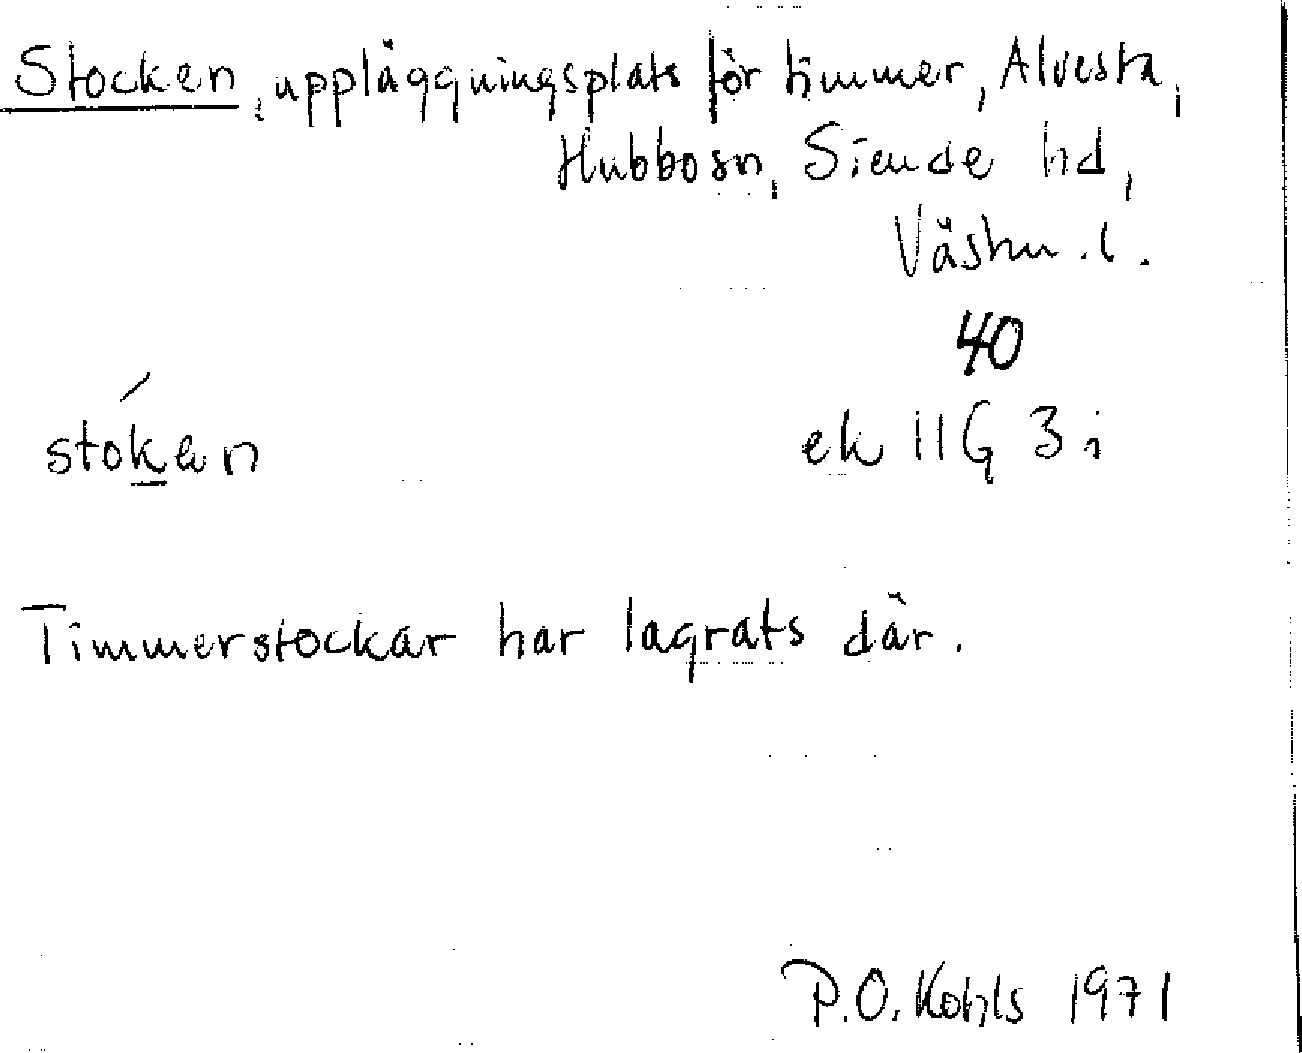 Stocken, uppläggningsplats för timmer, Alvesta,
Hubbosn, Siende hd,
Västm. l.
40
stókan ek 11G 3i
Timmerstockar har lagrats där.
P.O. Kohls 1971